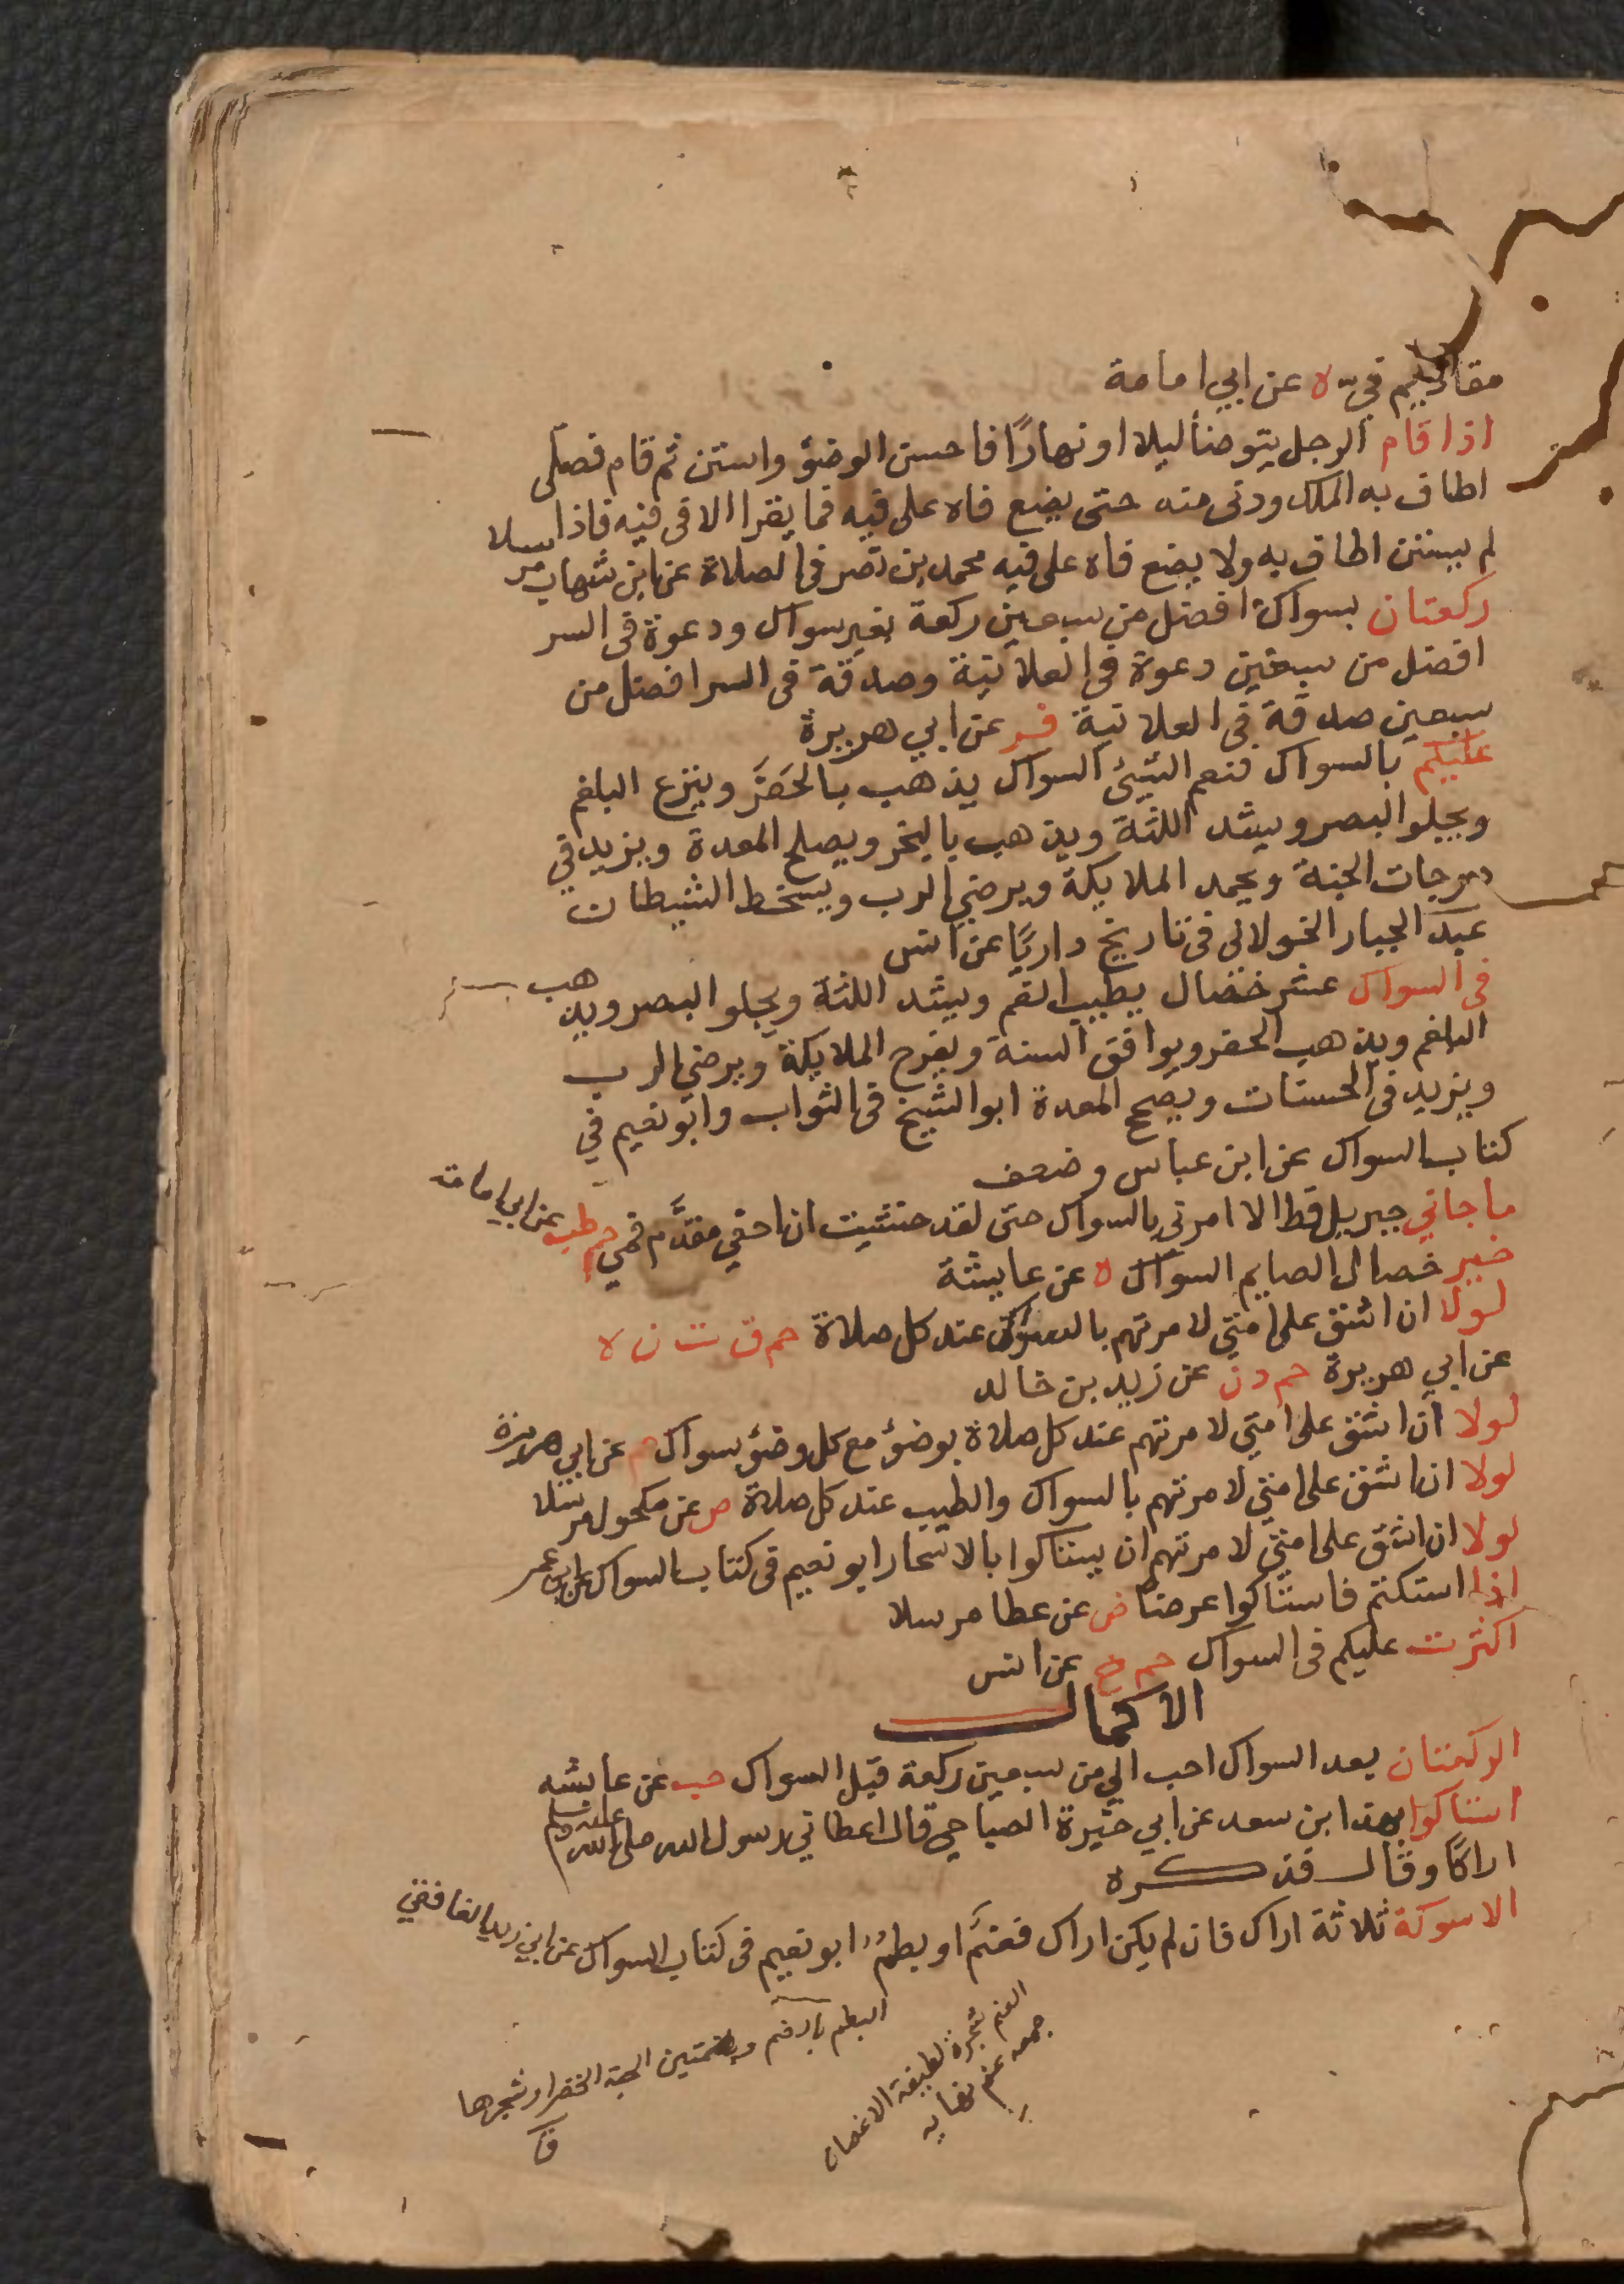 مقاديم في ه عن ابي امامة
اذا قام الرجل يتوضأ ليلا او نهارًا فاحسن الوضؤ واستن ثم قام فصلى
اطاف به الملك ودنى منه حتى يضع فاه على فيه فما يقرا الا فى فيه فاذا
لم يستن اطاف به ولا يضع فاه على فيه محمد بن نصر فى الصلاة عن ابن شهاب مرسلا
ركعتان بسواك افضل من سبعين ركعة بغير سواك ودعوة فى السر
افضل من سبعين دعوة في العلانية وصدقة فى السر افضل من
سبعين صدقة في العلانية فر عن ابي هريرة
عليكم بالسواك فنعم الشيئ السواك يذهب بالحَفَر وينزع البلغم
ويجلو البصر ويشد اللثة ويذهب بالبخر ويصلح المعدة ويزيد في
درجات الجنة ويحمد الملايكة ويرضي الرب ويسخط الشيطان
عبد الجبار الخولاني فى تاريخ داريّا عن انس
فى السواك عشر خصال يطيب الفم ويشد اللثة ويجلو البصر ويذهب
البلغم ويذهب الحفر ويوافق السنة ويفرح الملايكة ويرضي الرب
ويزيد فى الحسنات ويصحح المعدة ابو الشيخ فى الثواب وابو نعيم في
كتاب السواك عن ابن عباس وضعف
ما جاني جبريل قط الا امرنى بالسواك حتى لقد خشيت ان احفي مقدَّم فمي حم طب عن ابي امامة
خير خصال الصايم السواك ه عن عايشة
لولا ان اشق على امتي لامرتهم بالسواك عند كل صلاة حم ق ت ن ه
عن ابي هريرة حم د ن عن زيد بن خالد
لولا ان اشق على امتي لامرتهم عند كل صلاة بوضؤ مع كل وضؤ بسواك حم عن ابي هريرة
لولا ان اشق على امتي لامرتهم بالسواك والطيب عند كل صلاة ص عن مكحول مرسلا
لولا ان اشق على امتي لامرتهم ان يستاكوا بالاسحار ابو نعيم فى كتاب السواك عن ابن عمر
اذا استكتم فاستاكوا عرضا ص عن عطا مرسلا
اكثرت عليكم فى السواك حم خ عن انس
الاكمال
الركعتان بعد السواك احب الي من سبعين ركعة قبل السواك حب عن عايشه
استاكوا بهذا ابن سعد عن ابي خيرة الصباحي قال اعطاني رسول الله صلى الله عليه وسلم
اراكا وقال فذكره
الاسوكة ثلاثة اراك فان لم يكن اراك فعنَم او بطم ابو نعيم فى كتاب السواك عن ابي زيد الغافقي
العنم شجرة لطيفة الاغصان
جمعه عنم نهايه
البطم بالضم وبضمتين الحبة الخضرا او شجرها
ق